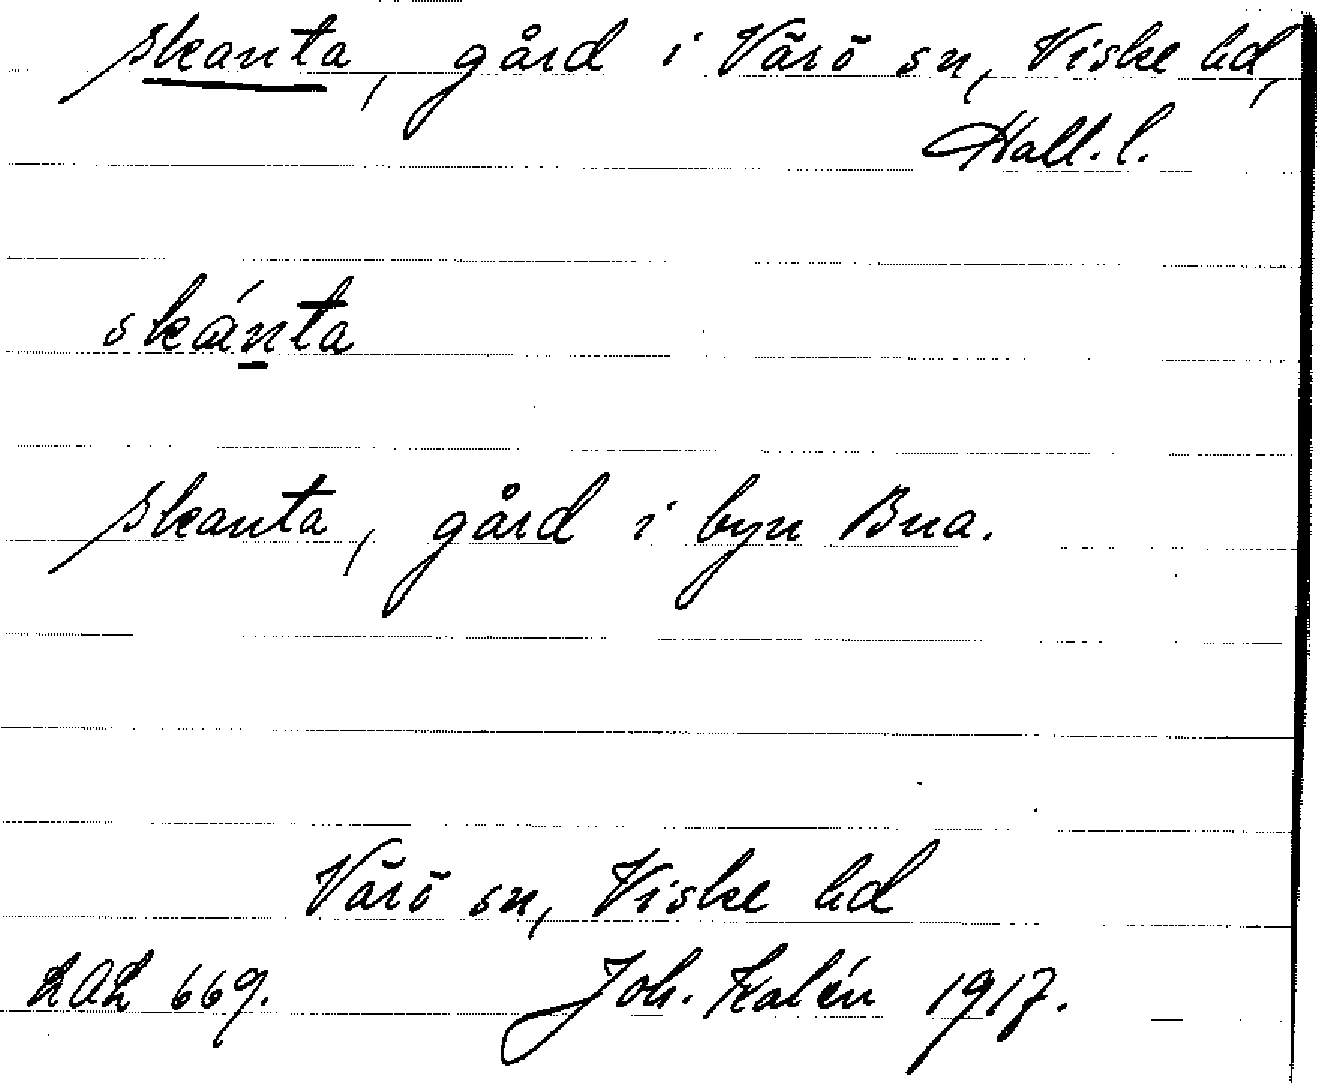 Skanta, gård i Värö sn, Viske hd,
Hall. l.
skánta
Skanta, gård i byn Bua.
Värö sn, Viske hd
LAL 669. Joh. Kalén 1917.